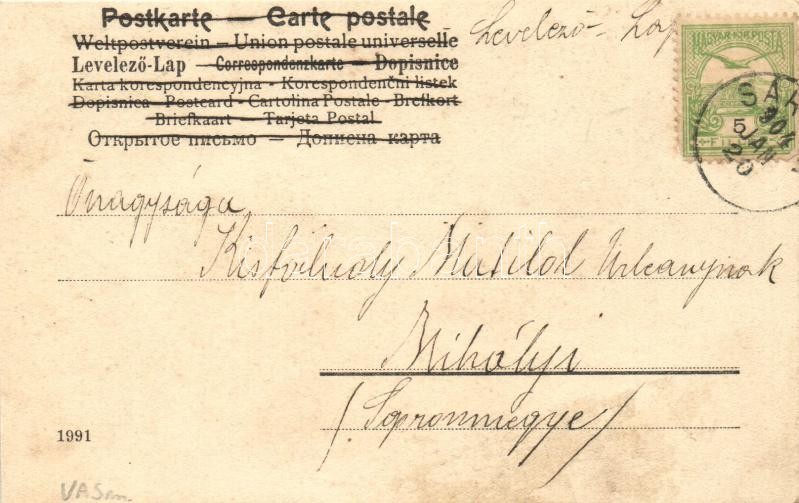 Postkarte — Carte postale
Weltpostverein — Union postale universelle
Levelező-Lap — Correspondenzkarte — Dopisnice
Karta korespondencyjna - Korespondenční listek
Dopisnica - Postcard - Cartolina Postale - Brefkort
Briefkaart — Tarjeta Postal
Открытое письмо — Дописна карта
Levelező- Lap
MAGYAR KIR. POSTA
904
JAN
20
Őnagysága
Kisfaludy Matild Urleánynak
Mihályi
/Sopronmegye/
1991
VASm.